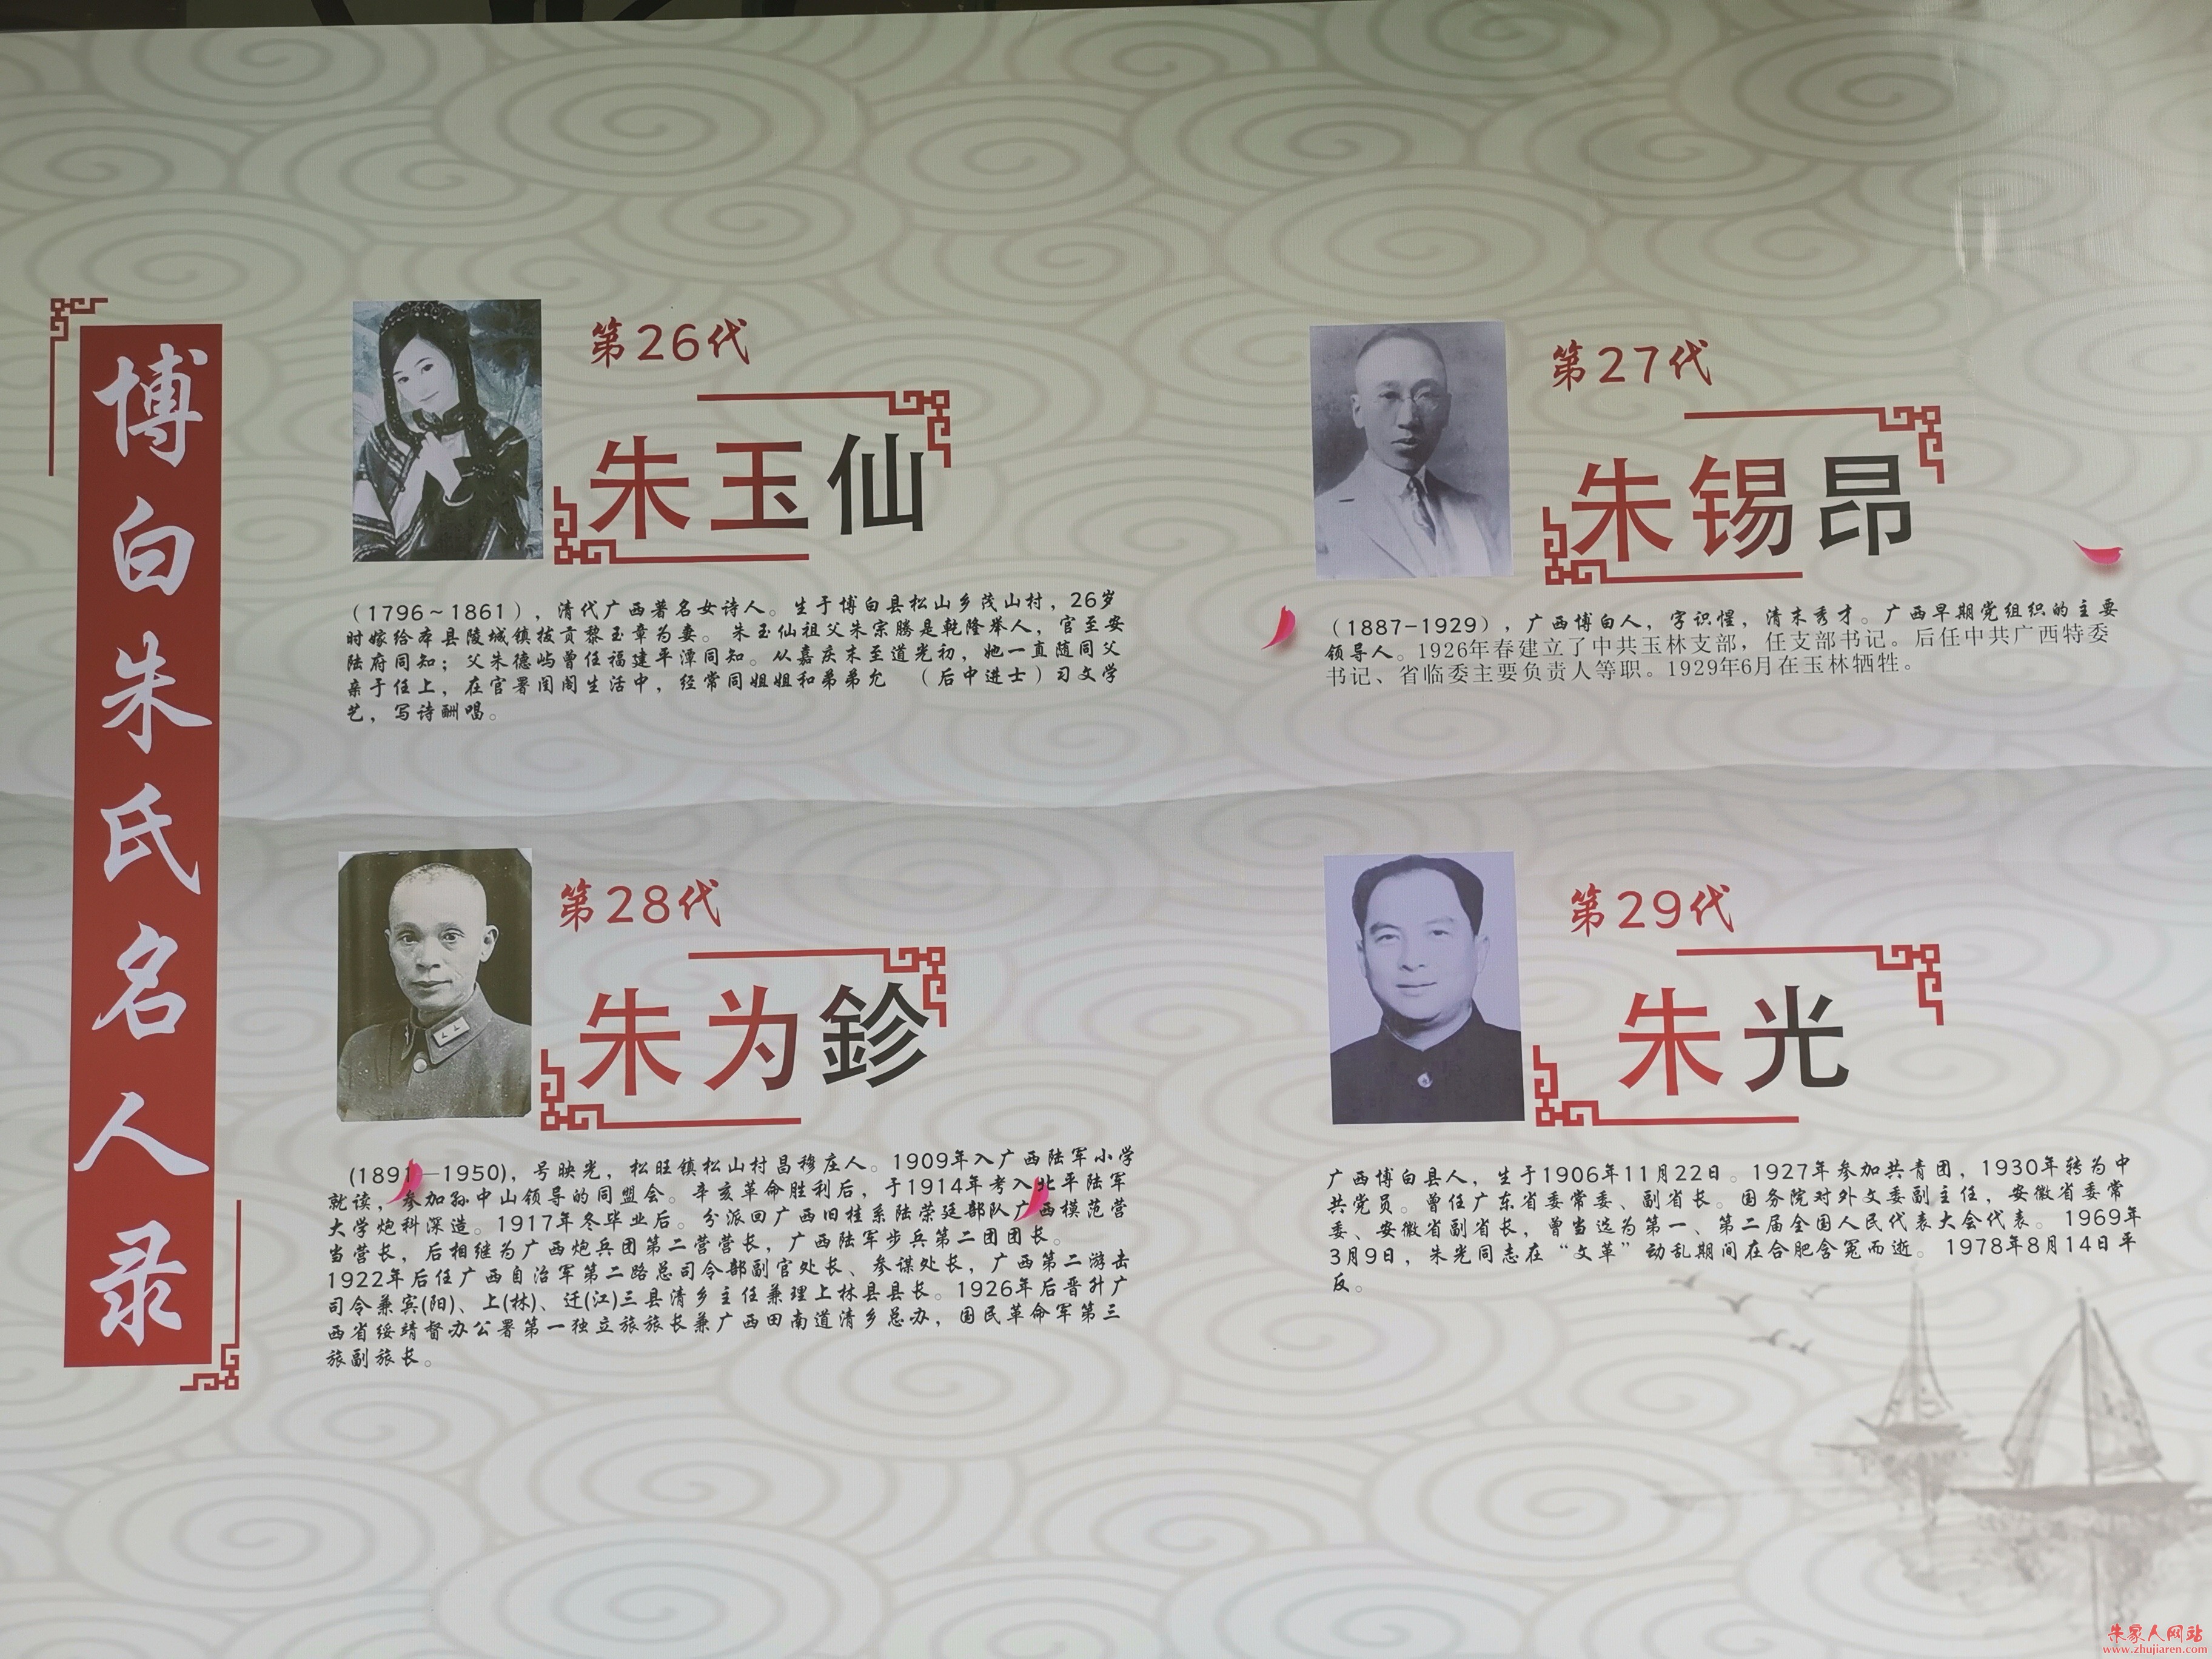 博白朱氏名人录
第26代
朱玉仙
（1796~1861），清代广西著名女诗人。生于博白县松山乡茂山村，26岁
时嫁给本县陵城镇拔贡黎玉章为妻。 朱玉仙祖父朱宗腾是乾隆举人，官至安
陆府同知；父朱德屿曾任福建平潭同知。从嘉庆末至道光初，她一直随同父
亲于任上，在官署闺阁生活中，经常同姐姐和弟弟允 （后中进士）习文学
艺，写诗酬唱。
第27代
朱锡昂
（1887-1929），广西博白人，字识惺，清末秀才。广西早期党组织的主要
领导人。1926年春建立了中共玉林支部，任支部书记。后任中共广西特委
书记、省临委主要负责人等职。1929年6月在玉林牺牲。
第28代
朱为鉁
(1891—1950)，号映光，松旺镇松山村昌穆庄人。1909年入广西陆军小学
就读，参加孙中山领导的同盟会。辛亥革命胜利后，于1914年考入北平陆军
大学炮科深造。1917年冬毕业后。分派回广西旧桂系陆荣廷部队广西模范营
当营长，后相继为广西炮兵团第二营营长，广西陆军步兵第二团团长。
1922年后任广西自治军第二路总司令部副官处长、参谋处长，广西第二游击
司令兼宾(阳)、上(林)、迁(江)三县清乡主任兼理上林县县长。1926年后晋升广
西省绥靖督办公署第一独立旅旅长兼广西田南道清乡总办，国民革命军第三
旅副旅长。
第29代
朱光
广西博白县人，生于1906年11月22日。1927年参加共青团，1930年转为中
共党员。曾任广东省委常委、副省长。国务院对外文委副主任，安徽省委常
委、安徽省副省长，曾当选为第一、第二届全国人民代表大会代表。1969年
3月9日，朱光同志在“文革”动乱期间在合肥含冤而逝。1978年8月14日平
反。
朱家人网站
www.zhujiaren.com